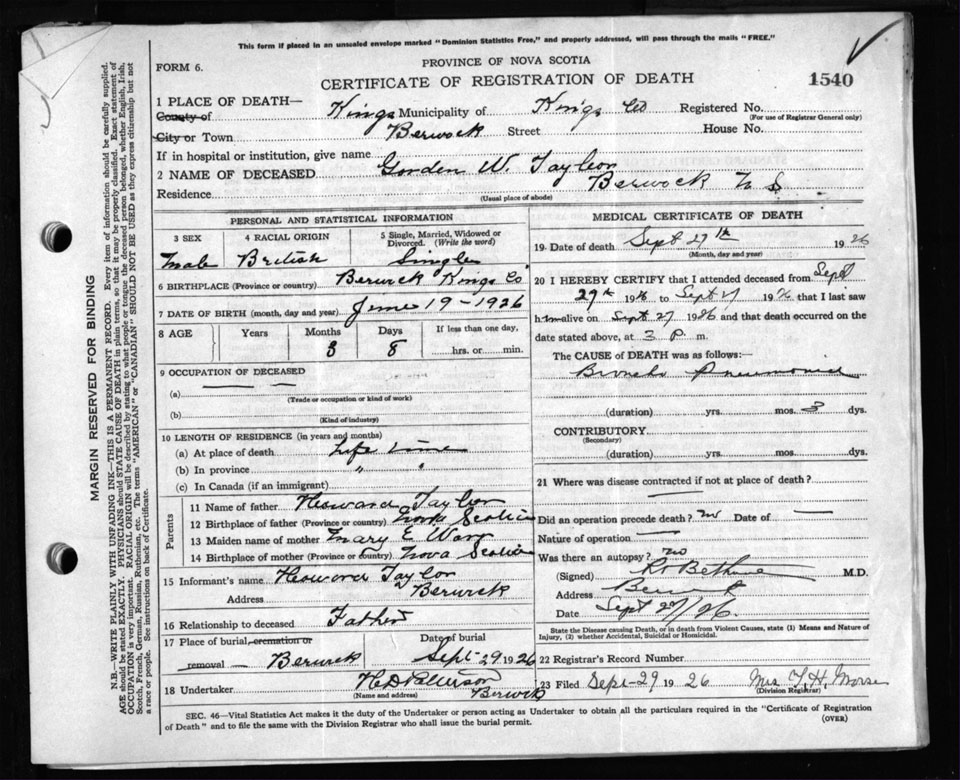 This form if placed in an unsealed envelope marked "Dominion Statistics Free," and properly addressed, will pass through the mails "FREE."
FORM 6.
PROVINCE OF NOVA SCOTIA
CERTIFICATE OF REGISTRATION OF DEATH
1540
1 PLACE OF DEATH—
County of Kings Municipality of Kings Co Registered No.
(For use of Registrar General only)
City or Town Berwock Street House No.
If in hospital or institution, give name
2 NAME OF DECEASED Gorden W. Taylor
Residence Berwock N S
(Usual place of abode)
PERSONAL AND STATISTICAL INFORMATION
3 SEX 4 RACIAL ORIGIN 5 Single, Married, Widowed or Divorced. (Write the word)
Male British Single
6 BIRTHPLACE (Province or country) Berwick Kings Co
7 DATE OF BIRTH (month, day and year) June 19-1926
8 AGE Years Months Days If less than one day,
3 8 hrs. or min.
9 OCCUPATION OF DECEASED
(a)
(Trade or occupation or kind of work)
(b)
(Kind of industry)
10 LENGTH OF RESIDENCE (in years and months)
(a) At place of death Life time
(b) In province " "
(c) In Canada (if an immigrant)
Parents
11 Name of father Howard Taylor
12 Birthplace of father (Province or country) Nova Scotia
13 Maiden name of mother Mary E
14 Birthplace of mother (Province or country) Nova Scotia
15 Informant's name Howard Taylor
Address Berwick
16 Relationship to deceased Father
17 Place of burial, cremation or removal — Berwick
Date of burial Sept-29 1926
18 Undertaker Berwick
(Name and address)
MEDICAL CERTIFICATE OF DEATH
19 Date of death Sept 27th 1926
(Month, day and year)
20 I HEREBY CERTIFY that I attended deceased from Sept
1926 to Sept 27 1926 that I last saw
him alive on Sept 27 1926 and that death occurred on the
date stated above, at 3 P. m.
The CAUSE of DEATH was as follows:—
Broncho Pneumonia
(duration) yrs. mos. 3 dys.
CONTRIBUTORY
(Secondary)
(duration) yrs. mos. dys.
21 Where was disease contracted if not at place of death?
Did an operation precede death? no Date of —
Nature of operation —
Was there an autopsy? no
(Signed) Bethune M.D.
Address Berwick
Date Sept 27/26
State the Disease causing Death, or in death from Violent Causes, state (1) Means and Nature of
Injury, (2) whether Accidental, Suicidal or Homicidal.
22 Registrar's Record Number
23 Filed Sept-29 1926 Mrs T. H. Morse
(Division Registrar)
SEC. 46—Vital Statistics Act makes it the duty of the Undertaker or person acting as Undertaker to obtain all the particulars required in the "Certificate of Registration
of Death" and to file the same with the Division Registrar who shall issue the burial permit.
(OVER)
MARGIN RESERVED FOR BINDING
N.B.—WRITE PLAINLY WITH UNFADING INK—THIS IS A PERMANENT RECORD. Every item of information should be carefully supplied.
AGE should be stated EXACTLY. PHYSICIANS should STATE CAUSE OF DEATH in plain terms, so that it may be properly classified. Exact statement of
OCCUPATION is very important. RACIAL ORIGIN will be described by stating to what people or tongue the deceased person belonged, whether English, Irish,
Scotch, French, German, Russian, Ruthenian, etc. The terms "AMERICAN" or "CANADIAN" SHOULD NOT BE USED as they express citizenship but not
a race or people. See instructions on back of Certificate.